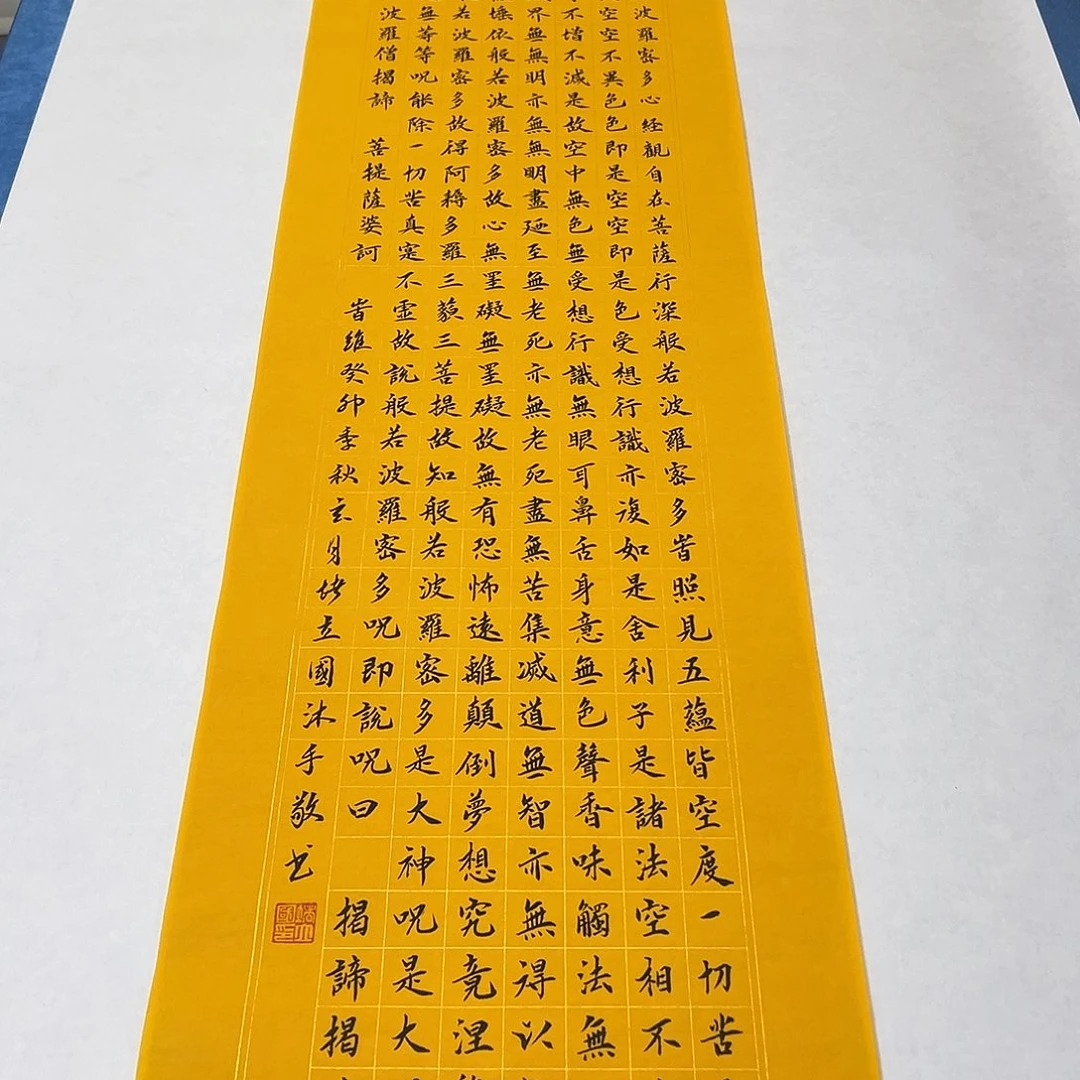 波羅密多心經觀自在菩薩行深般若波羅密多旹照見五蘊皆空度一切苦
空空不異色色即是空空即是色受想行識亦復如是舍利子是諸法空相不
不增不減是故空中無色無受想行識無眼耳鼻舌身意無色聲香味觸法無
界無無明亦無無明盡廼至無老死亦無老死盡無苦集滅道無智亦無得以
埵依般若波羅密多故心無罣礙無罣礙故無有恐怖遠離顛倒夢想究竟涅
若波羅密多故得阿耨多羅三藐三菩提故知般若波羅密多是大神呪是大
無等等呪能除一切苦真寔不虛故說般若波羅密多呪即說呪曰 揭諦揭
波羅僧揭諦 菩提薩婆訶 旹維癸卯季秋玄月立國沐手敬书